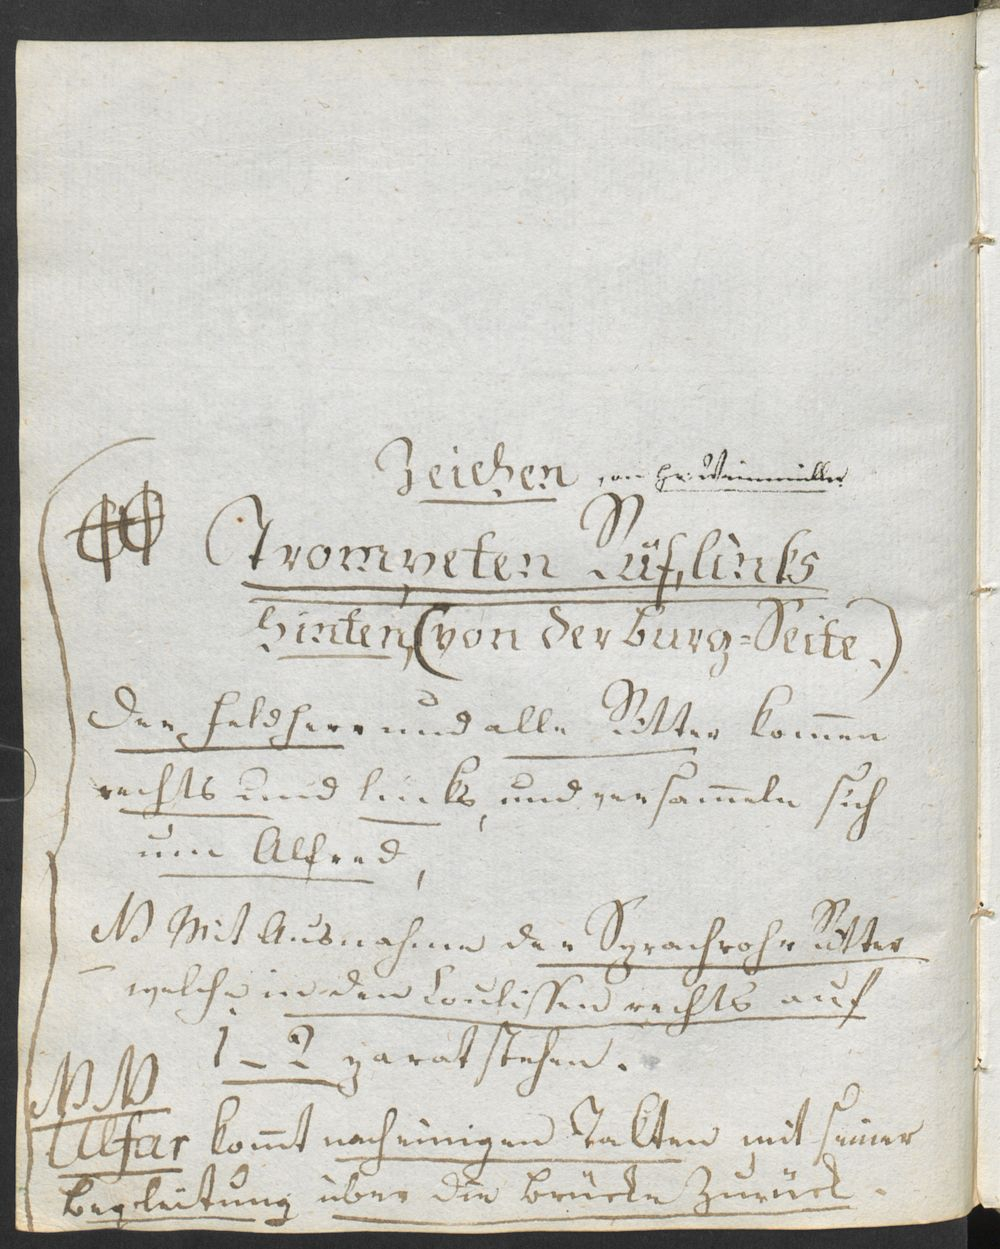 Zeichen von Hr: Weinmüller
Trompeten Ruf, links
hinten, (von der Burg=Seite.)
Der Feldherr und alle Ritter kom̅en
rechts und links, und versam̅eln sich
um Alfred,
NB Mit Ausnahme der Sprachrohr Ritter
welche in den Coulissen rechts auf
1 - 2 parat stehen.
NB NB
Alfar kom̅t nach einigen Takten mit seiner
Begleitung über die Brücke zurück.